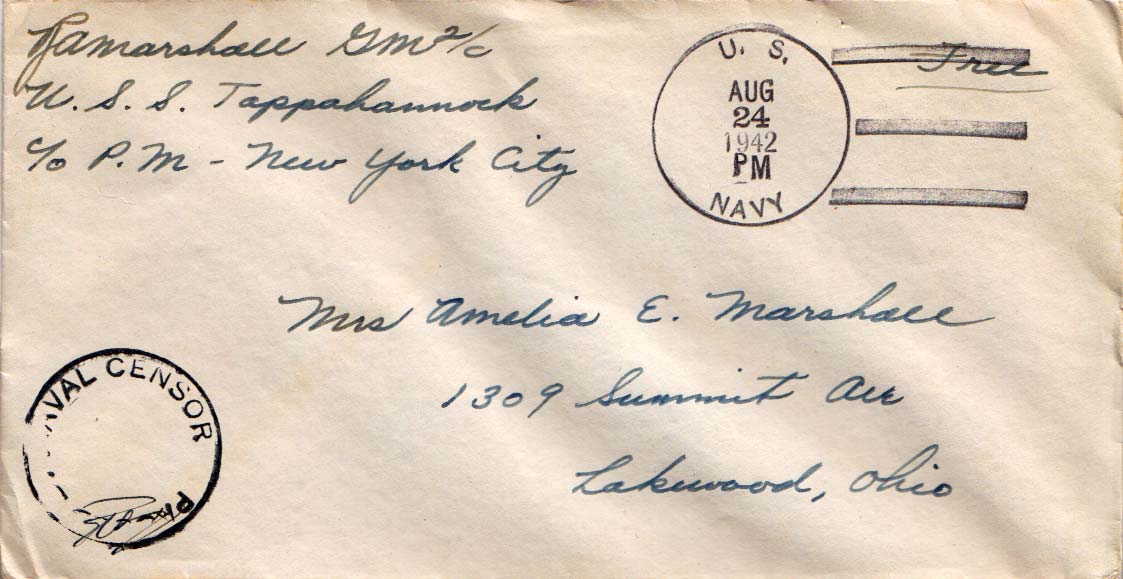 RAMarshall GM2/c
U.S.S. Tappahannock
c/o P.M - New York City
U. S.
AUG
24
1942
PM
NAVY
Free
Mrs Amelia E. Marshall
1309 Summit Ave
Lakewood, Ohio
NAVAL CENSOR